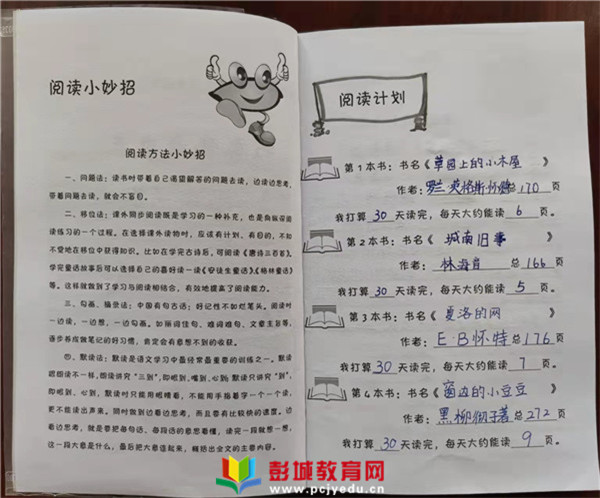 阅读小妙招
阅读方法小妙招
一、问题法：读书时带着自己渴望解答的问题去读，边读边思考，
带着问题去读，就会不盲目。
二、移位法：课外同步阅读既是学习的一种补充，也是向纵深阅
读练习的一个过程。在选择课外读物时，应该有计划、有目的，不知
不觉地在移位中获得知识。比如在学完古诗后，可阅读《唐诗三百首》，
学完童话故事后可以选择自己的喜好读一读《安徒生童话》《格林童话》
等。这样就做到了学习与阅读相结合，有效地提高了阅读能力。
三、勾画、摘录法：中国有句古话：好记性不如烂笔头。阅读时
一边读，一边想，一边勾画。如画词佳句、难词难句、文章主旨等，
逐步养成做笔记的好习惯，肯定会有意想不到的收获。
四、默读法：默读是语文学习中最经常最重要的训练之一。默读
跟朗读不一样，朗读讲究“三到”，即眼到，嘴到，心到；默读只讲究“到”，
即眼到、心到，默读时只能用眼睛看，不能用手指着字一个一个读，
更不能读出声来。同时做到边看边思考，而且要有比较快的速度。边
看边思考，就是要把每句话、每段话的意思看懂，读完一段就想一想，
这一段大意是什么，最后把大意连起来，概括出全文的主要内容。
阅读计划
第1本书：书名《草园上的小木屋》
作者：罗兰·英格斯·怀德 总170页
我打算30天读完，每天大约能读6页。
第2本书：书名《城南旧事》
作者：林海音 总166页
我打算30天读完，每天大约能读5页。
第3本书：书名《夏洛的网》
作者：E·B怀特 总176页
我打算30天读完，每天大约能读7页。
第4本书：书名《窗边的小豆豆》
作者：黑柳彻子著 总272页
我打算30天读完，每天大约能读9页。
彭城教育网
www.pcjyedu.cn